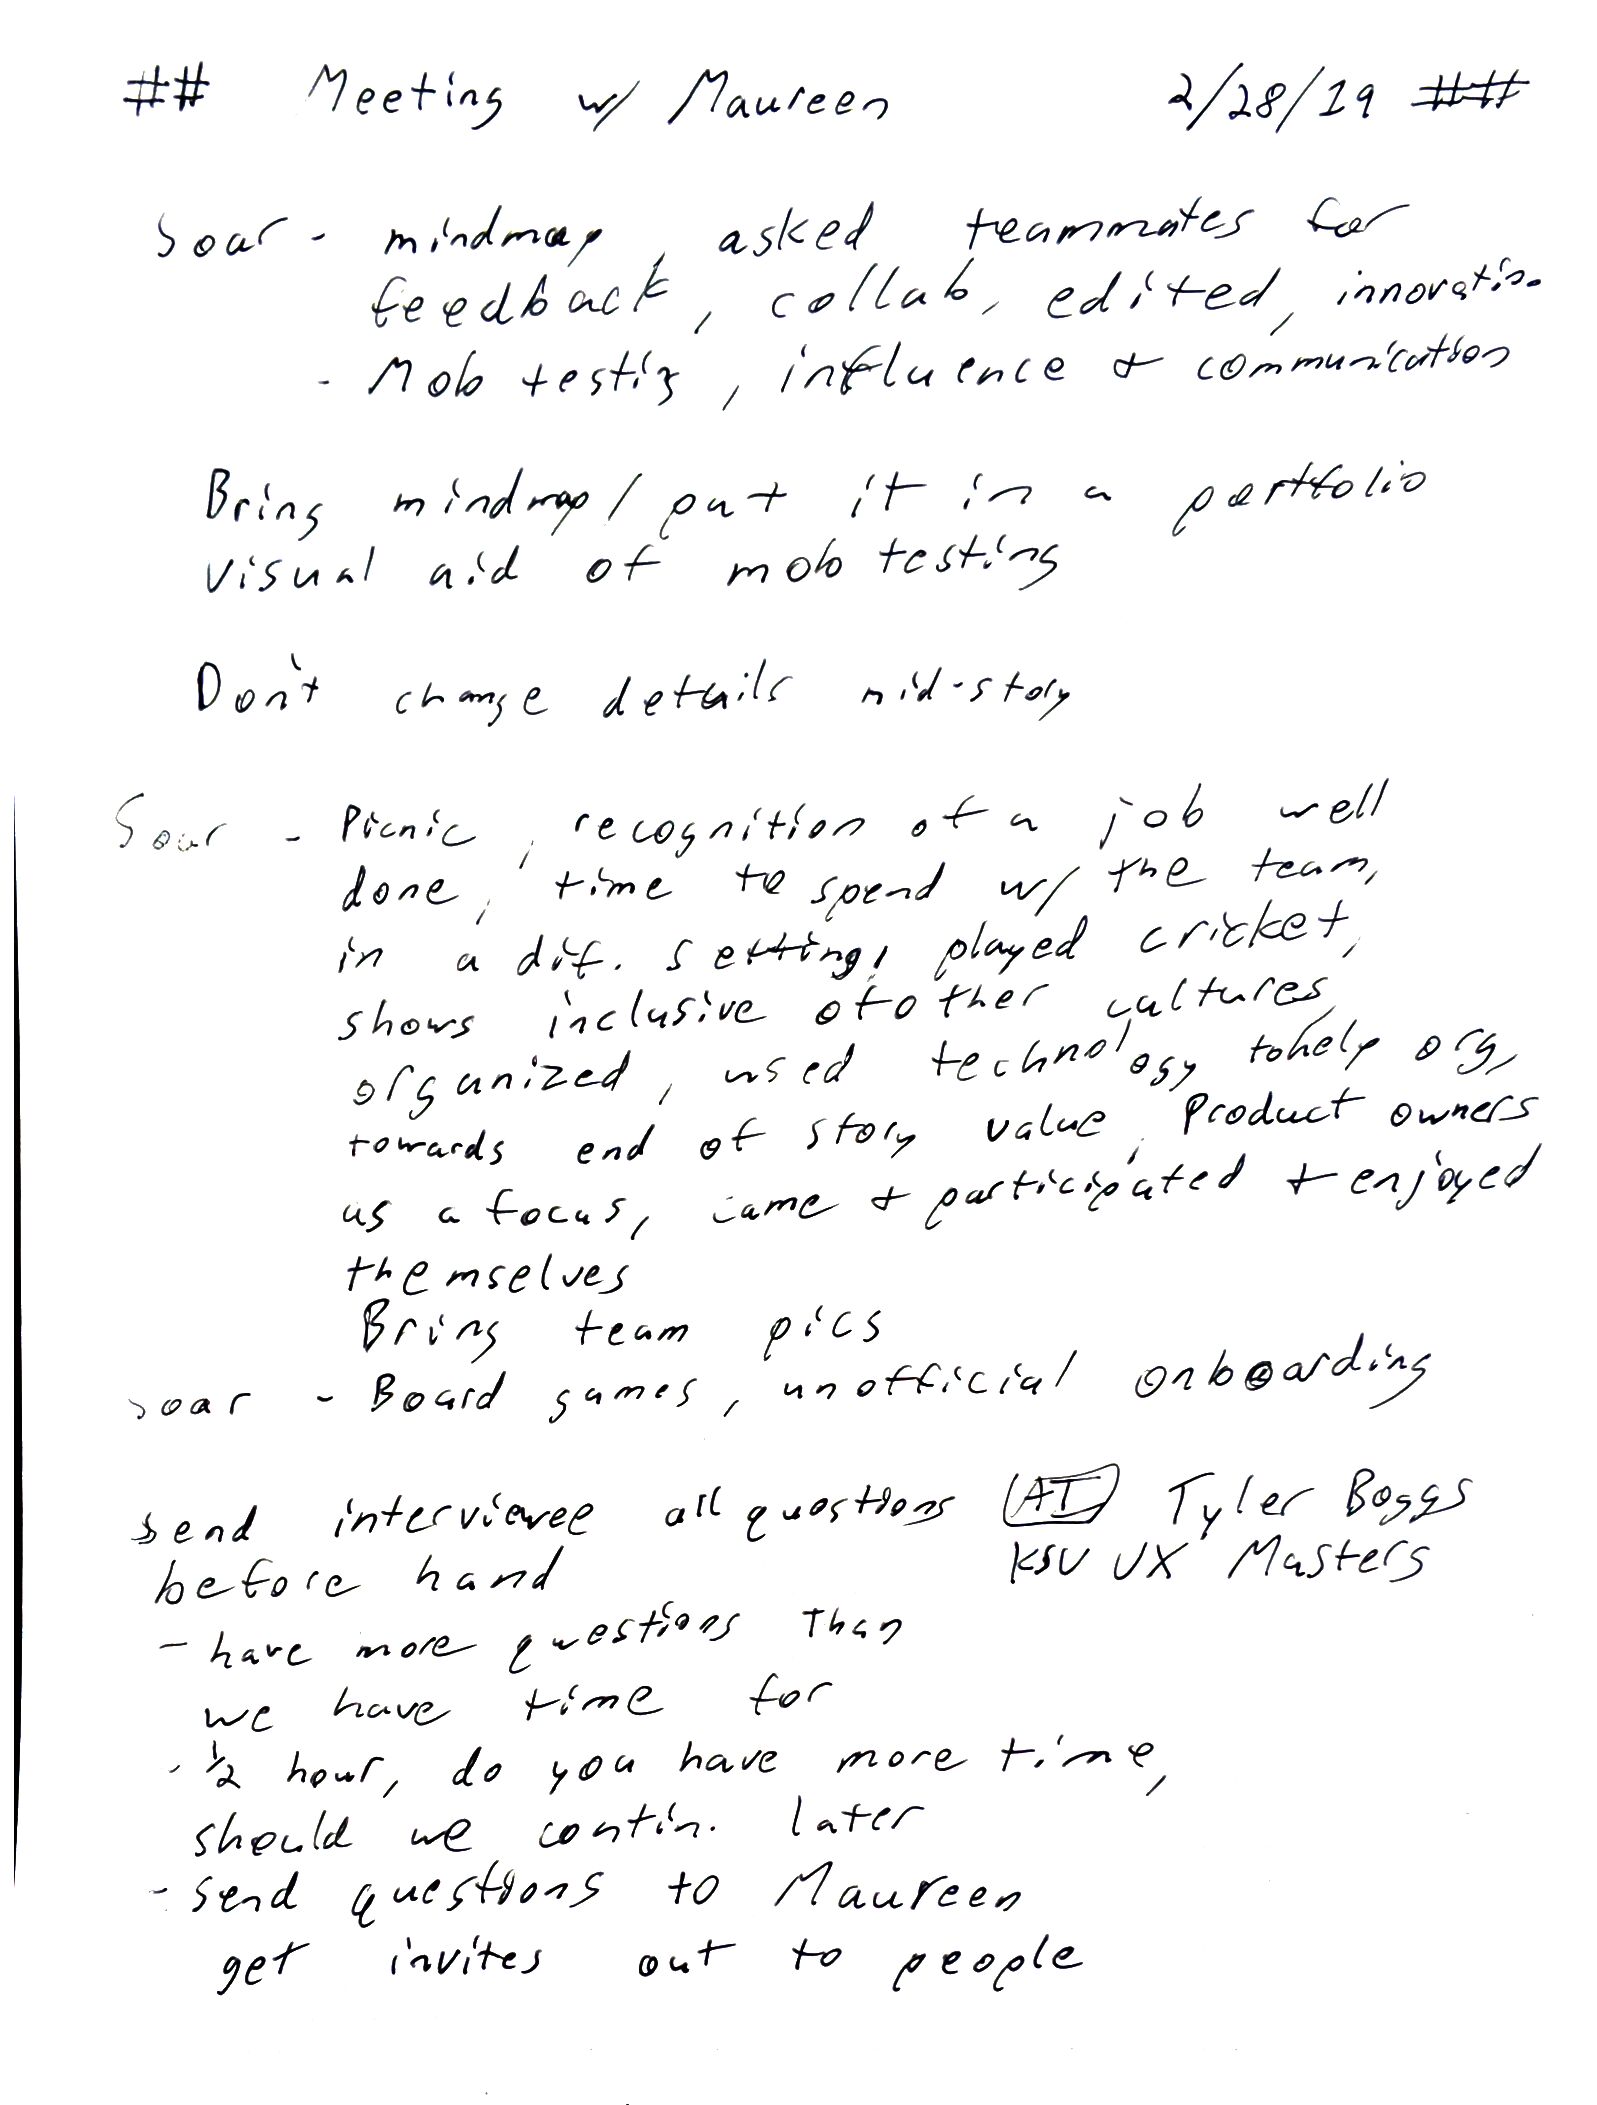 ## Meeting w/ Maureen 2/28/19 ##
Soar - mindmap, asked teammates for
feedback, collab, edited, innovatin.
- Mob testig, influence & communication
Bring mindmap / put it in a portfolio
visual aid of mob testing
Don't change details mid-story
Soar - Picnic, recognition of a job well
done, time to spend w/ the team,
in a dif. setting, played cricket,
shows inclusive of other cultures,
organized, used technology to help org,
towards end of story value, Product owners
as a focus, came & participated & enjoyed
themselves
Bring team pics
Soar - Board games, unofficial onboarding
Send interviewee all questions AI Tyler Boggs
before hand KSU UX Masters
- have more questions than
we have time for
- 1/2 hour, do you have more time,
should we contin. later
- send questions to Maureen
get invites out to people